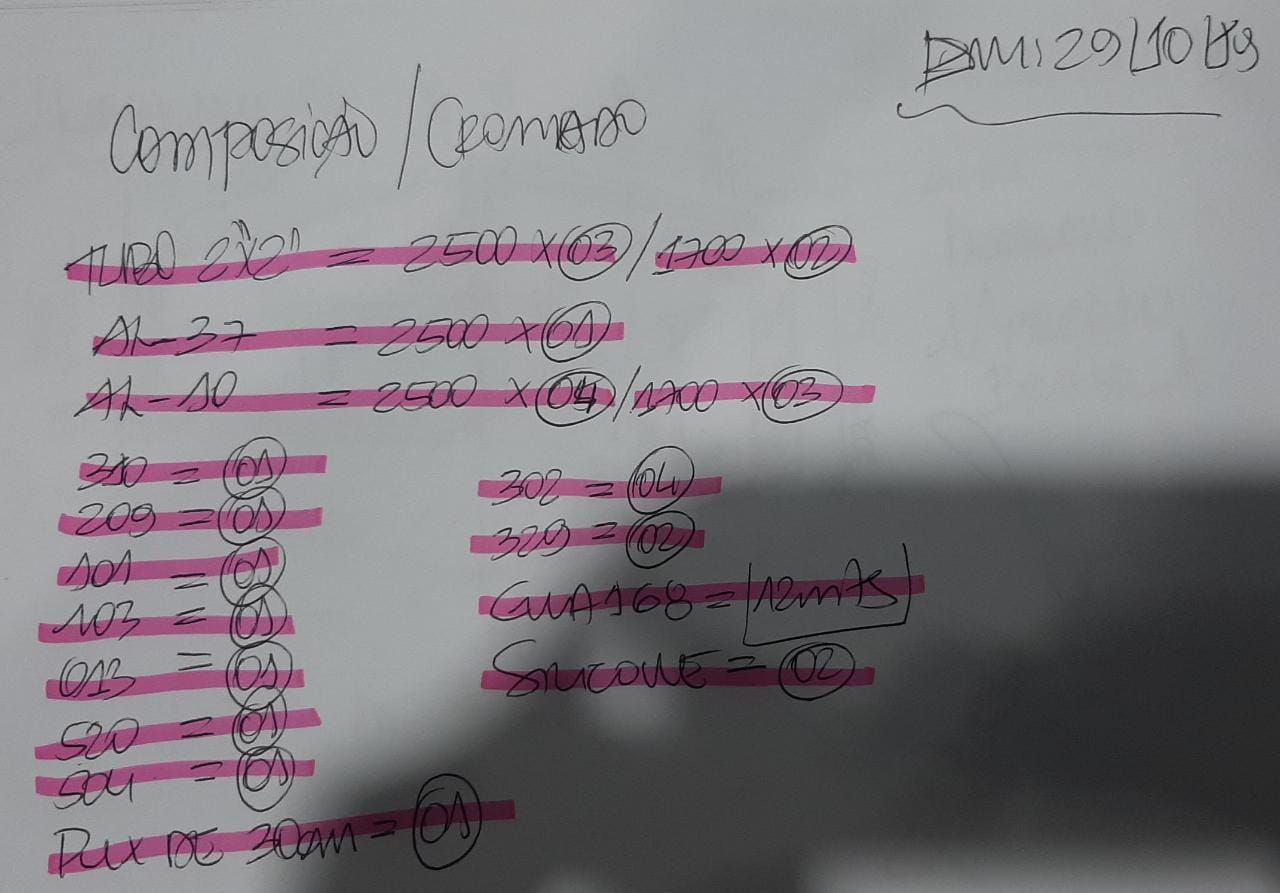 DM: 29/10/19
Composição / Cromado
TUBO 2"x2" = 2500 x 03 / 1700 x 02
AL-37 = 2500 x 01
AL-10 = 2500 x 04 / 1700 x 03
310 = 01
209 = 01
101 = 01
103 = 01
013 = 01
520 = 01
504 = 01
PUX DE 30cm = 01
302 = 04
329 = 02
GUA168 = 12mts
SILICONE = 02